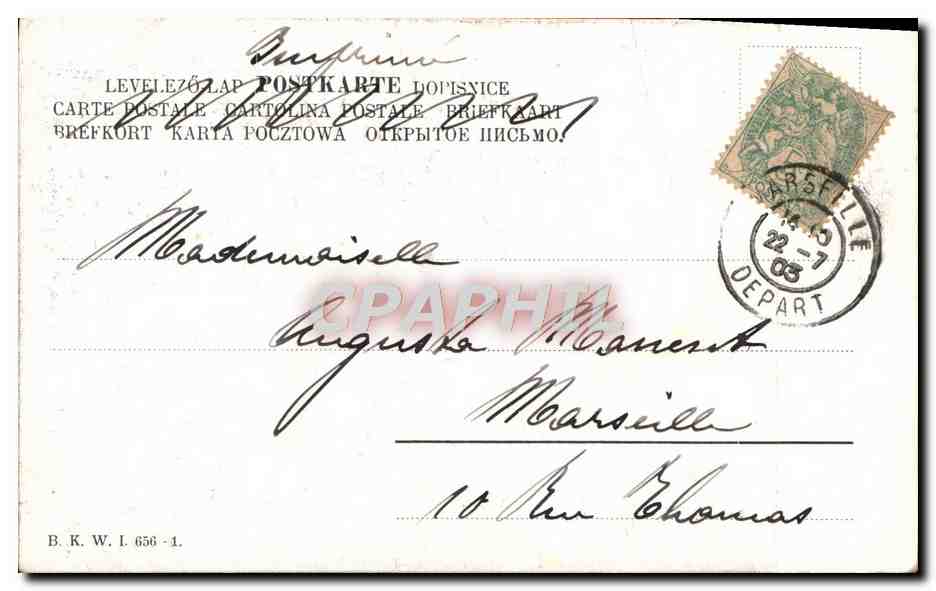 Imprimé
LEVELEZŐ-LAP POSTKARTE DOPISNICE
CARTE POSTALE - CARTOLINA POSTALE - BRIEFKAART
BREFKORT KARTA POCZTOWA ОТКРЫТОЕ ПИСЬМО.
MARSEILLE
22 -7
03
DEPART
Mademoiselle
CPAPHIL
Augusta
Marseille
10 Rue Thomas
B. K. W. I. 656 - 1.